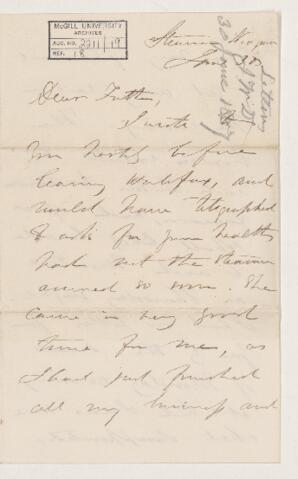 McGILL UNIVERSITY
ARCHIVES
ACC. NO. 2211/19
REF. 18
Steamer
June 30
30 June 1867
Dear Father,
I wrote
you hastily before
leaving Halifax, and
would have telegraphed
to ask for your health
had not the steamer
arrived so soon. She
came in very good
time for me, as
I had just finished
all my business and